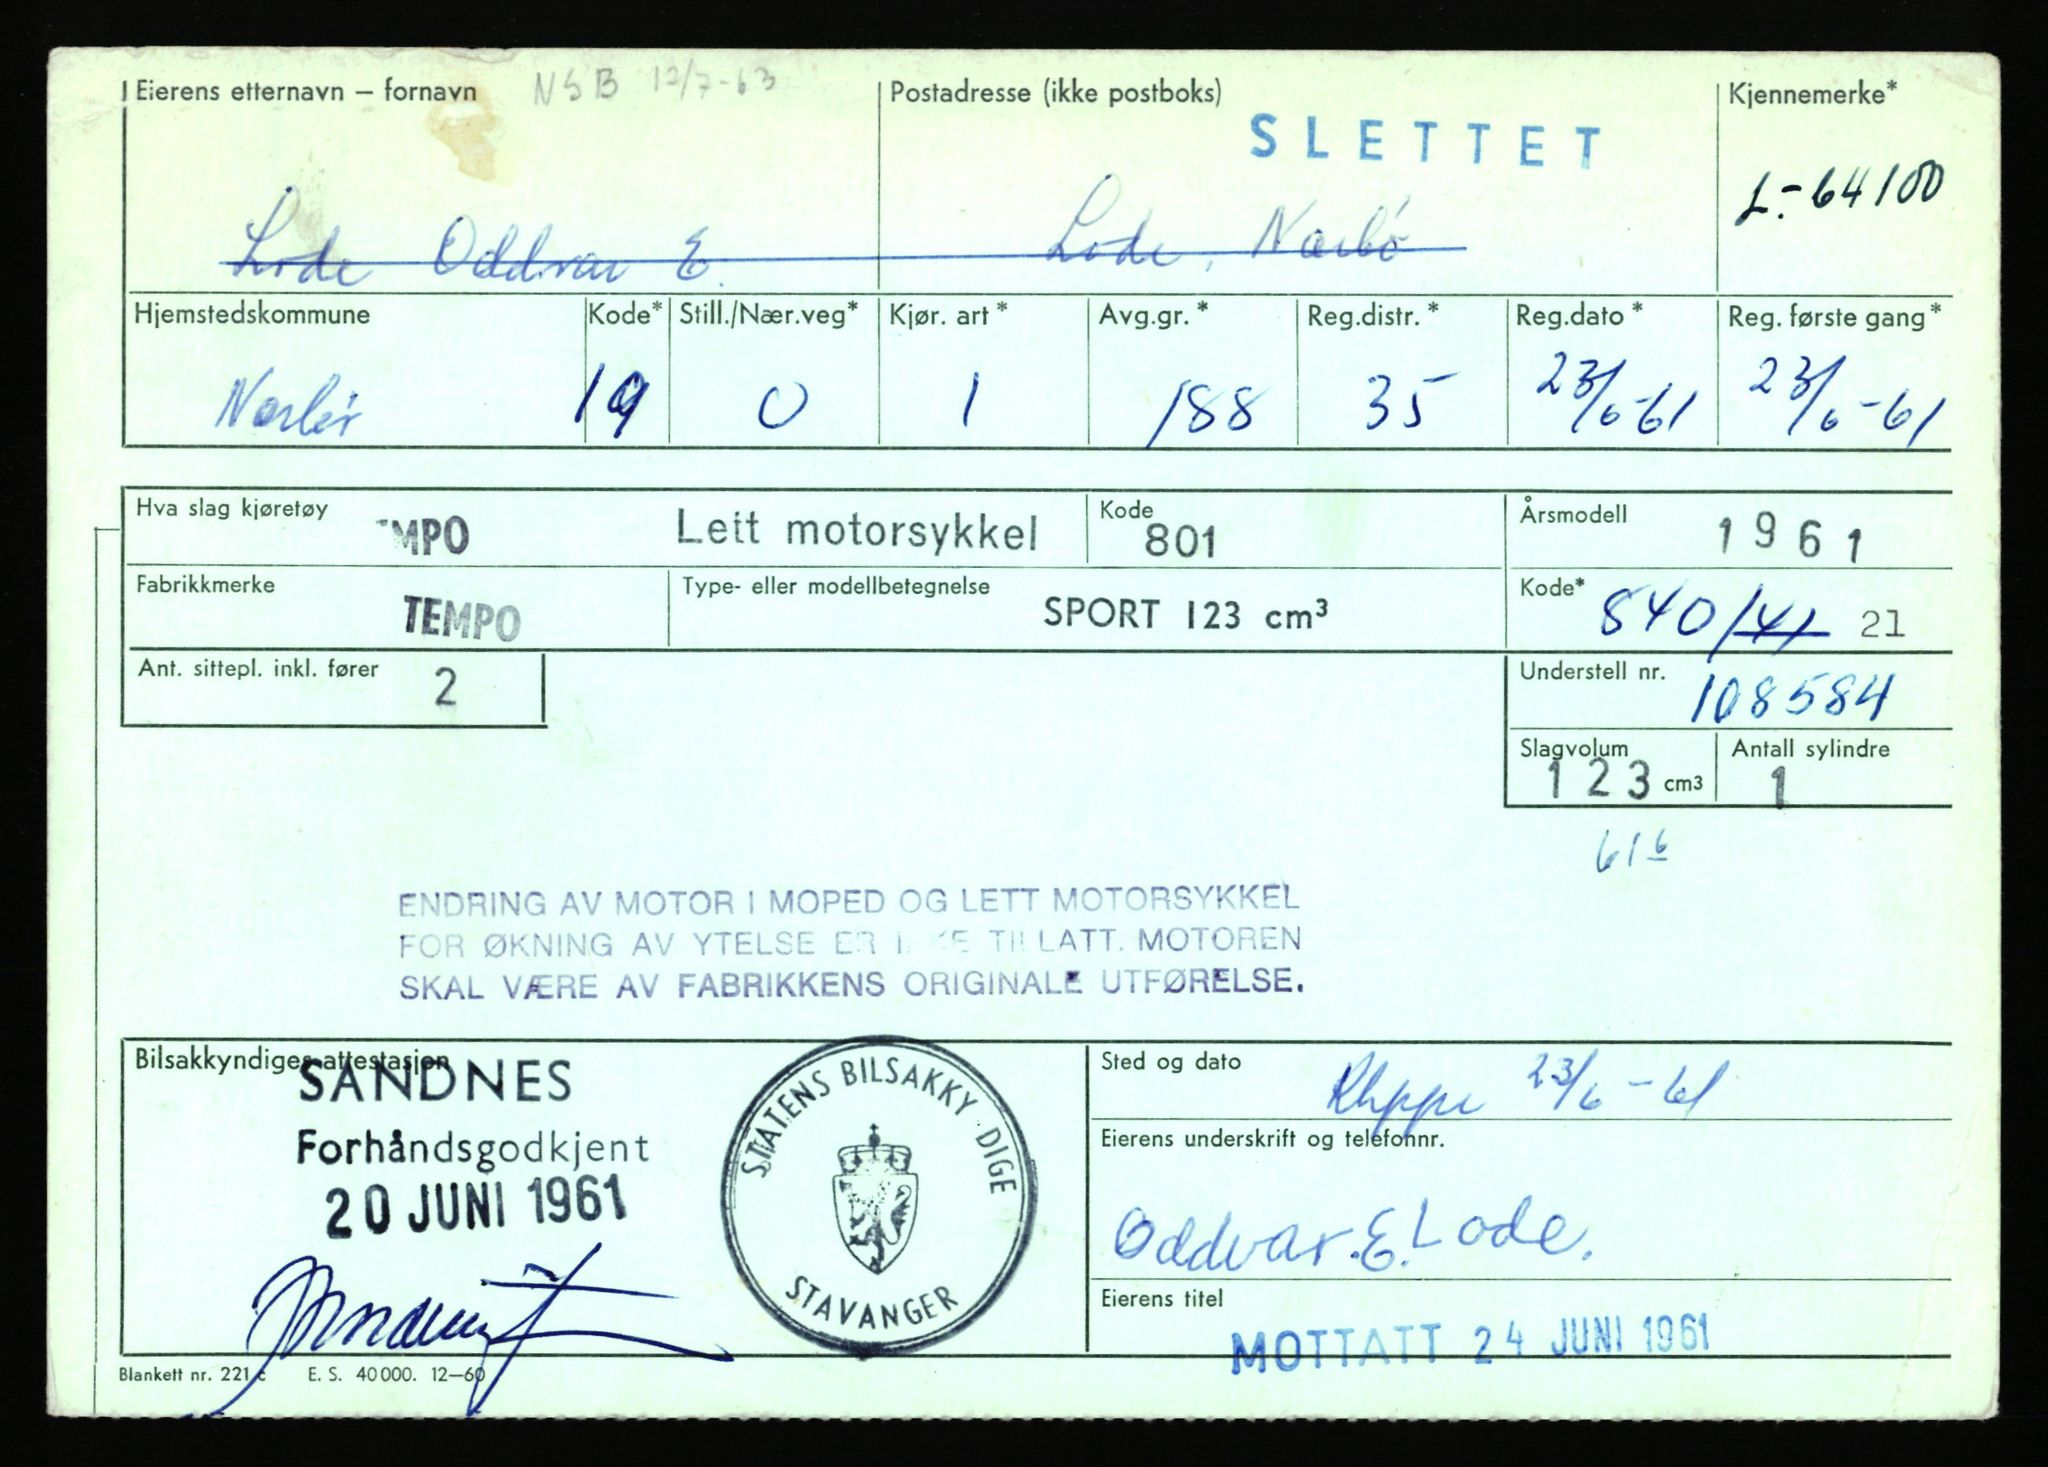 Eierens etternavn – fornavn NSB 12/7-63 Postadresse (ikke postboks) Kjennemerke*
SLETTET
L.-64100
Lode Oddvar E. Lode, Nærbø
Hjemstedskommune Kode* Still./Nær.veg* Kjør. art* Avg.gr.* Reg.distr.* Reg.dato* Reg. første gang*
Nærbø 19 0 1 188 35 23/6-61 23/6-61
Hva slag kjøretøy MPO Lett motorsykkel Kode 801 Årsmodell 1961
Fabrikkmerke TEMPO Type- eller modellbetegnelse SPORT 123 cm³ Kode* 840/41 21
Ant. sittepl. inkl. fører 2 Understell nr. 108584
Slagvolum 123 cm³ Antall sylindre 1
61 6
ENDRING AV MOTOR I MOPED OG LETT MOTORSYKKEL
FOR ØKNING AV YTELSE ER IKKE TILLATT. MOTOREN
SKAL VÆRE AV FABRIKKENS ORIGINALE UTFØRELSE.
Bilsakkyndiges attestasjon
SANDNES
Forhåndsgodkjent
20 JUNI 1961
STATENS BILSAKKYNDIGE
STAVANGER
Sted og dato Kleppe 23/6-61
Eierens underskrift og telefonnr.
Oddvar. E. Lode.
Eierens titel
MOTTATT 24 JUNI 1961
Blankett nr. 221 c E. S. 40 000. 12—60